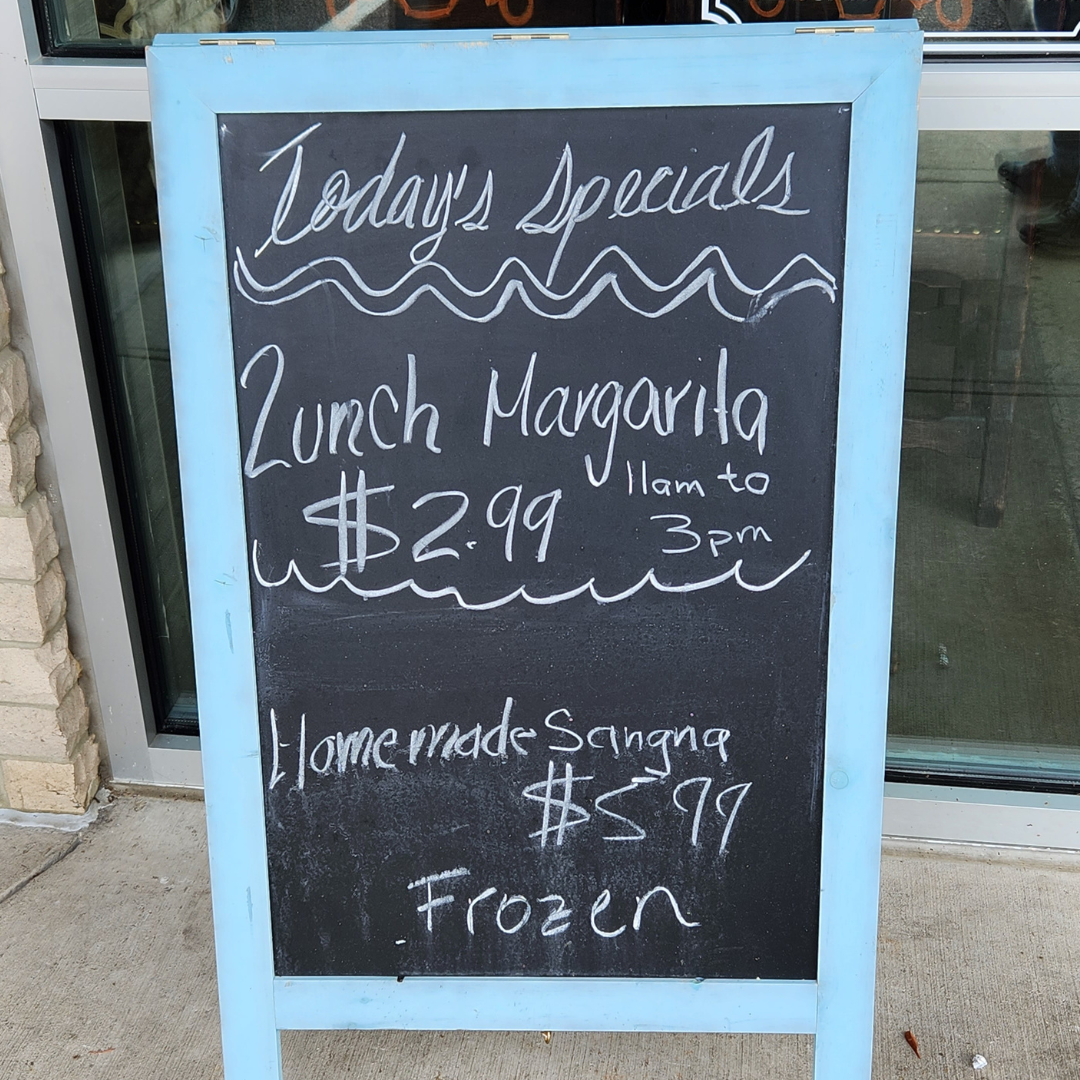 Today's Specials
Lunch Margarita
$2.99
11am to
3pm
Homemade Sangria
$5.99
Frozen